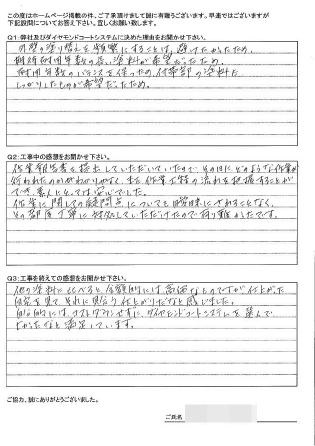 この度はホームページ掲載の件、ご了承頂けまして誠に有難うございます。早速ではございますが
下記設問についてお答え下さい。宜しくお願い致します。
Q1:弊社及びダイヤモンドコートシステムに決めた理由をお聞かせ下さい。
外壁の塗り替えを頻繁にすることは、避けたかったため、
期待耐用年数の長い塗料が希望だったため。
耐用年数のバランスを保つため、付帯部の塗料も
しっかりしたものが希望だったため。
Q2:工事中の感想をお聞かせ下さい。
作業報告書を提出していただいていたので、その日にどのような作業が
行われたのかがわかりやすく、また作業工程の流れを把握することが
でき、素人としては安心でした。
作業に関しての疑問点についても曖昧にされることなく、
その都度丁寧に対処していただけたので有り難かったです。
Q3:工事を終えての感想をお聞かせ下さい。
他の塗料に比べると、金額的には高価なものですが仕上がった
自宅を見て、それに見合う仕上がりだなと感じました。
結果的には、コストダウンせずに、ダイヤモンドコートシステムを選んで
よかったなと満足しています。
ご協力、誠にありがとうございました。
ご氏名